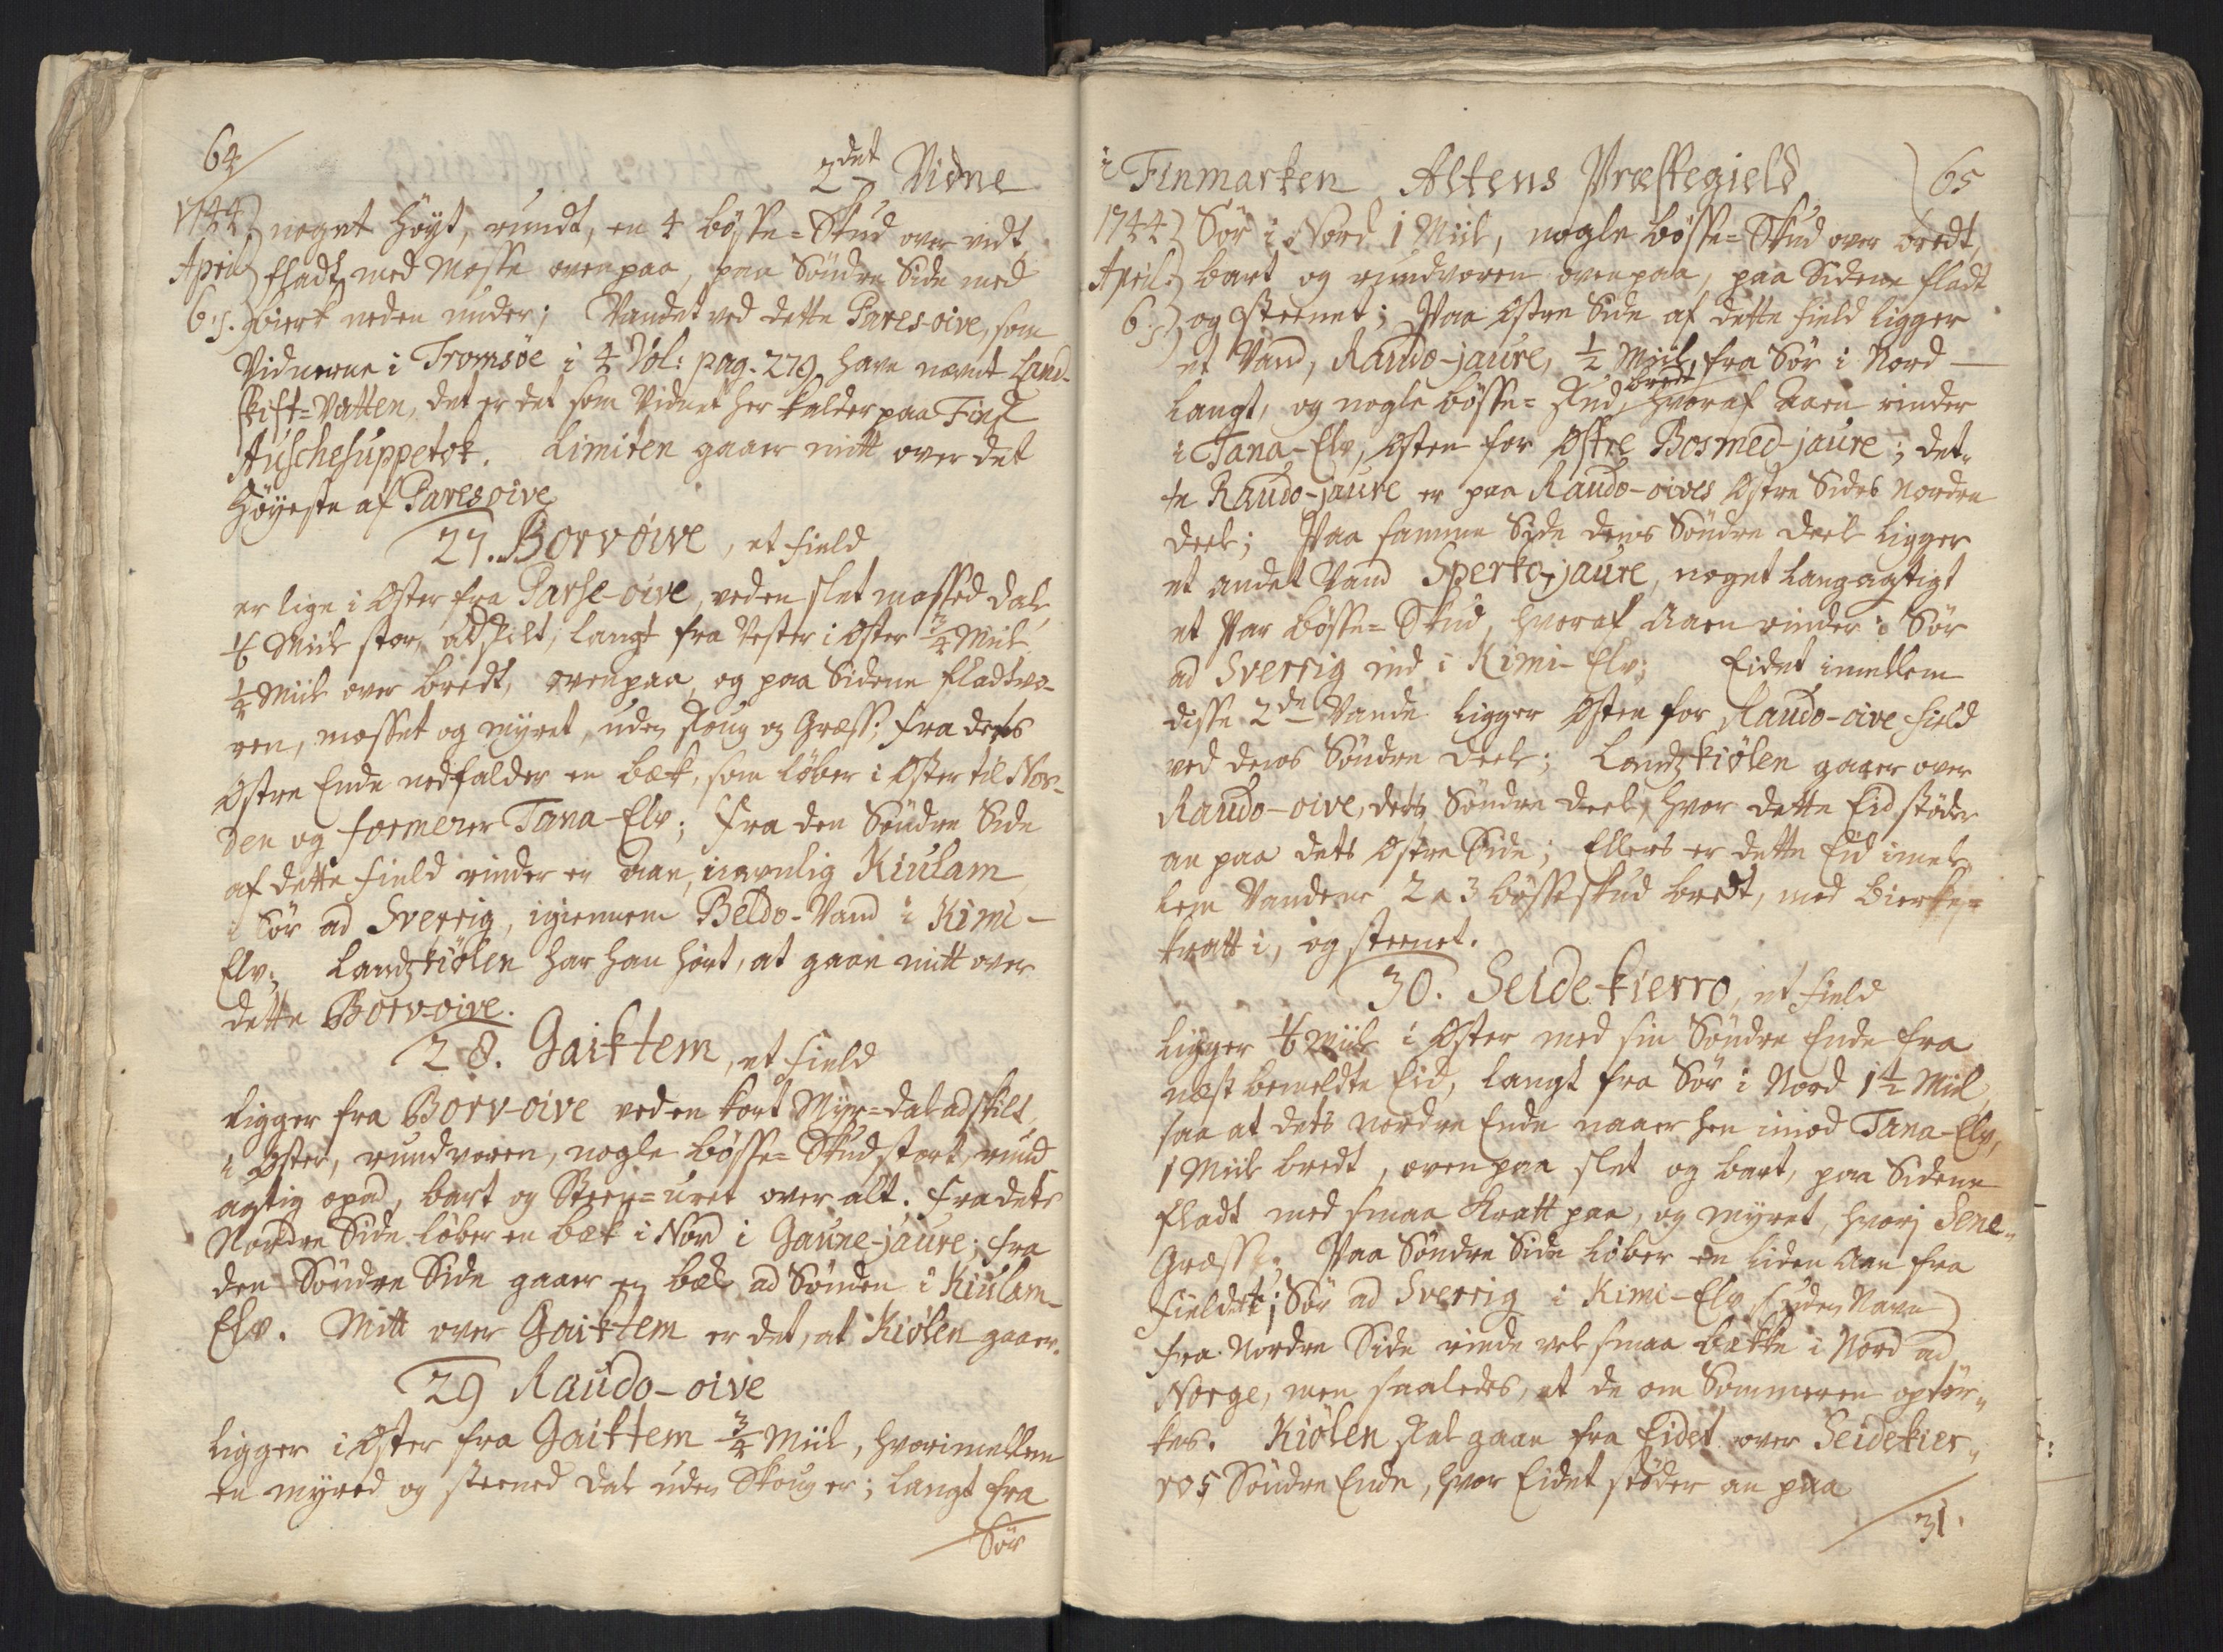 64
2det Vidne
1744 noget Höyt, rundt, en 4 bösse=Skud over vidt,
April fladt med Mosse ovenpaa, paa Söndre Side med
6:s. birk neden under; Vandet ved dette Pares-oive, som
Vidnerne i Tromsöe i 4 Vol: pag. 279 have nævnt Land-
skift=Vatten, det er det som Vidnet her kalder paa Finsk
Auschesuppetok. Limiten gaaer mitt over det
Höyeste af Paresoive
27. Borvoive, et field
er lige i Oster fra Parse-oive, ved en slet mossed dal,
1/6 Miil stor, adskilt, langt fra Vester i Oster 3/4 Miil
1/4 Miil over bredt, ovenpaa og paa Siderne fladvo-
ren, mosset og myret, uden Skoug og Græss; fra dets
Ostre Ende nedfalder en bæk, som löber i Oster til Nor-
den og formerer Tana-Elv; fra den Söndre Side
af dette field rinder en Aae, navnlig Kiulam
i Sör ad Sverrig, igiennem Beldo-Vand i Kimi-
Elv; Landzkiölen har han hört, at gaae mitt over
dette Borv-oive.
28. Gaiktem, et field
ligger fra Borv-oive ved en kort Myr=dal adskilt,
i Oster, rundvoren, nogle bösse=Skud stort, rund
agtig opad, bart og Steen=uret over alt. fra dets
Nordre Side löber en bæk i Nord i Gaune-jaure; fra
den Söndre Side gaaer en bæk ad Sönden i Kiulam-
Elv. Mitt over Gaiktem er det, at Kiölen gaaer.
29 Raudo-oive
ligger i Oster fra Gaiktem 3/4 Miil, hvorimellem
en myred og steened dal uden Skoug er; langt fra
Sör
i Finmarken Altens Præstegield 65
1744 Sör i Nord 1 Miil, nogle bösse=Skud over bredt,
April. bart og rundvoren ovenpaa, paa Siderne fladt
6:s og steenet; Paa Ostre Side af dette field ligger
et Vand, Raudo-jaure, 1/2 Miil, fra Sör i Nord
langt, og nogle bösse=Skud bredt, hvoraf Aaen rinder
i Tana-Elv, Osten for Ostre Bosmed-jaure; det-
te Raudo-jaure er paa Raudo-oives Ostre Sides Nordre
deel; Paa samme Side dens Söndre deel ligger
et andet Vand Sperko-jaure, noget langagtigt
et Par bösse=Skud, hvoraf Aaen rinder i Sör
ad Sverrig ind i Kimi-Elv; Eidet imellem
disse 2de Vande ligger Osten for Raudo-oive field
ved dens Söndre deel; Landzkiölen gaaer over
Raudo-oive, dets Söndre deel, hvor dette Eid stöder
an paa dets Ostre Side; Ellers er dette Eid imel-
lem Vandene 2 a 3 bösseskud bredt, med birke=
kratt i, og steenet.
30. Seidekierro, et field
ligger 1/6 Miil i Oster med sin Söndre Ende fra
næst bemeldte Eid, langt fra Sör i Nord 1 1/2 Miil,
saa at dets Nordre Ende naaer hen imod Tana-Elv,
1 Miil bredt, ovenpaa slet og bart, paa Siderne
fladt med smaa Kratt paa, og myret, hvori Sene-
Græss. Paa Söndre Side löber en liden Aae fra
fieldet i Sör ad Sverrig i Kimi-Elv (uden Navn)
fra Nordre Side rinde vel smaa bække i Nord ad
Norge, men saaledes, at de om Sommeren optör-
kes. Kiölen skal gaae fra Eidet over Seidekier-
ros Söndre Ende, hvor Eidet stöder an paa
31.